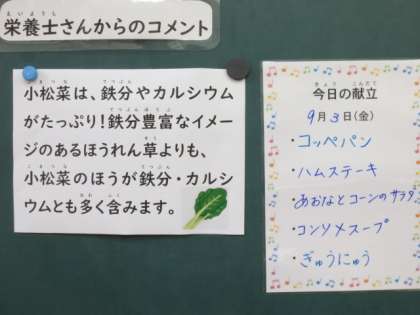 栄養士さんからのコメント
小松菜は、鉄分やカルシウム
がたっぷり！鉄分豊富なイメー
ジのあるほうれん草よりも、
小松菜のほうが鉄分・カルシ
ウムとも多く含みます。
今日の献立
9月3日(金)
・コッペパン
・ハムステーキ
・あおなとコーンのサラダ
・コンソメスープ
・ぎゅうにゅう